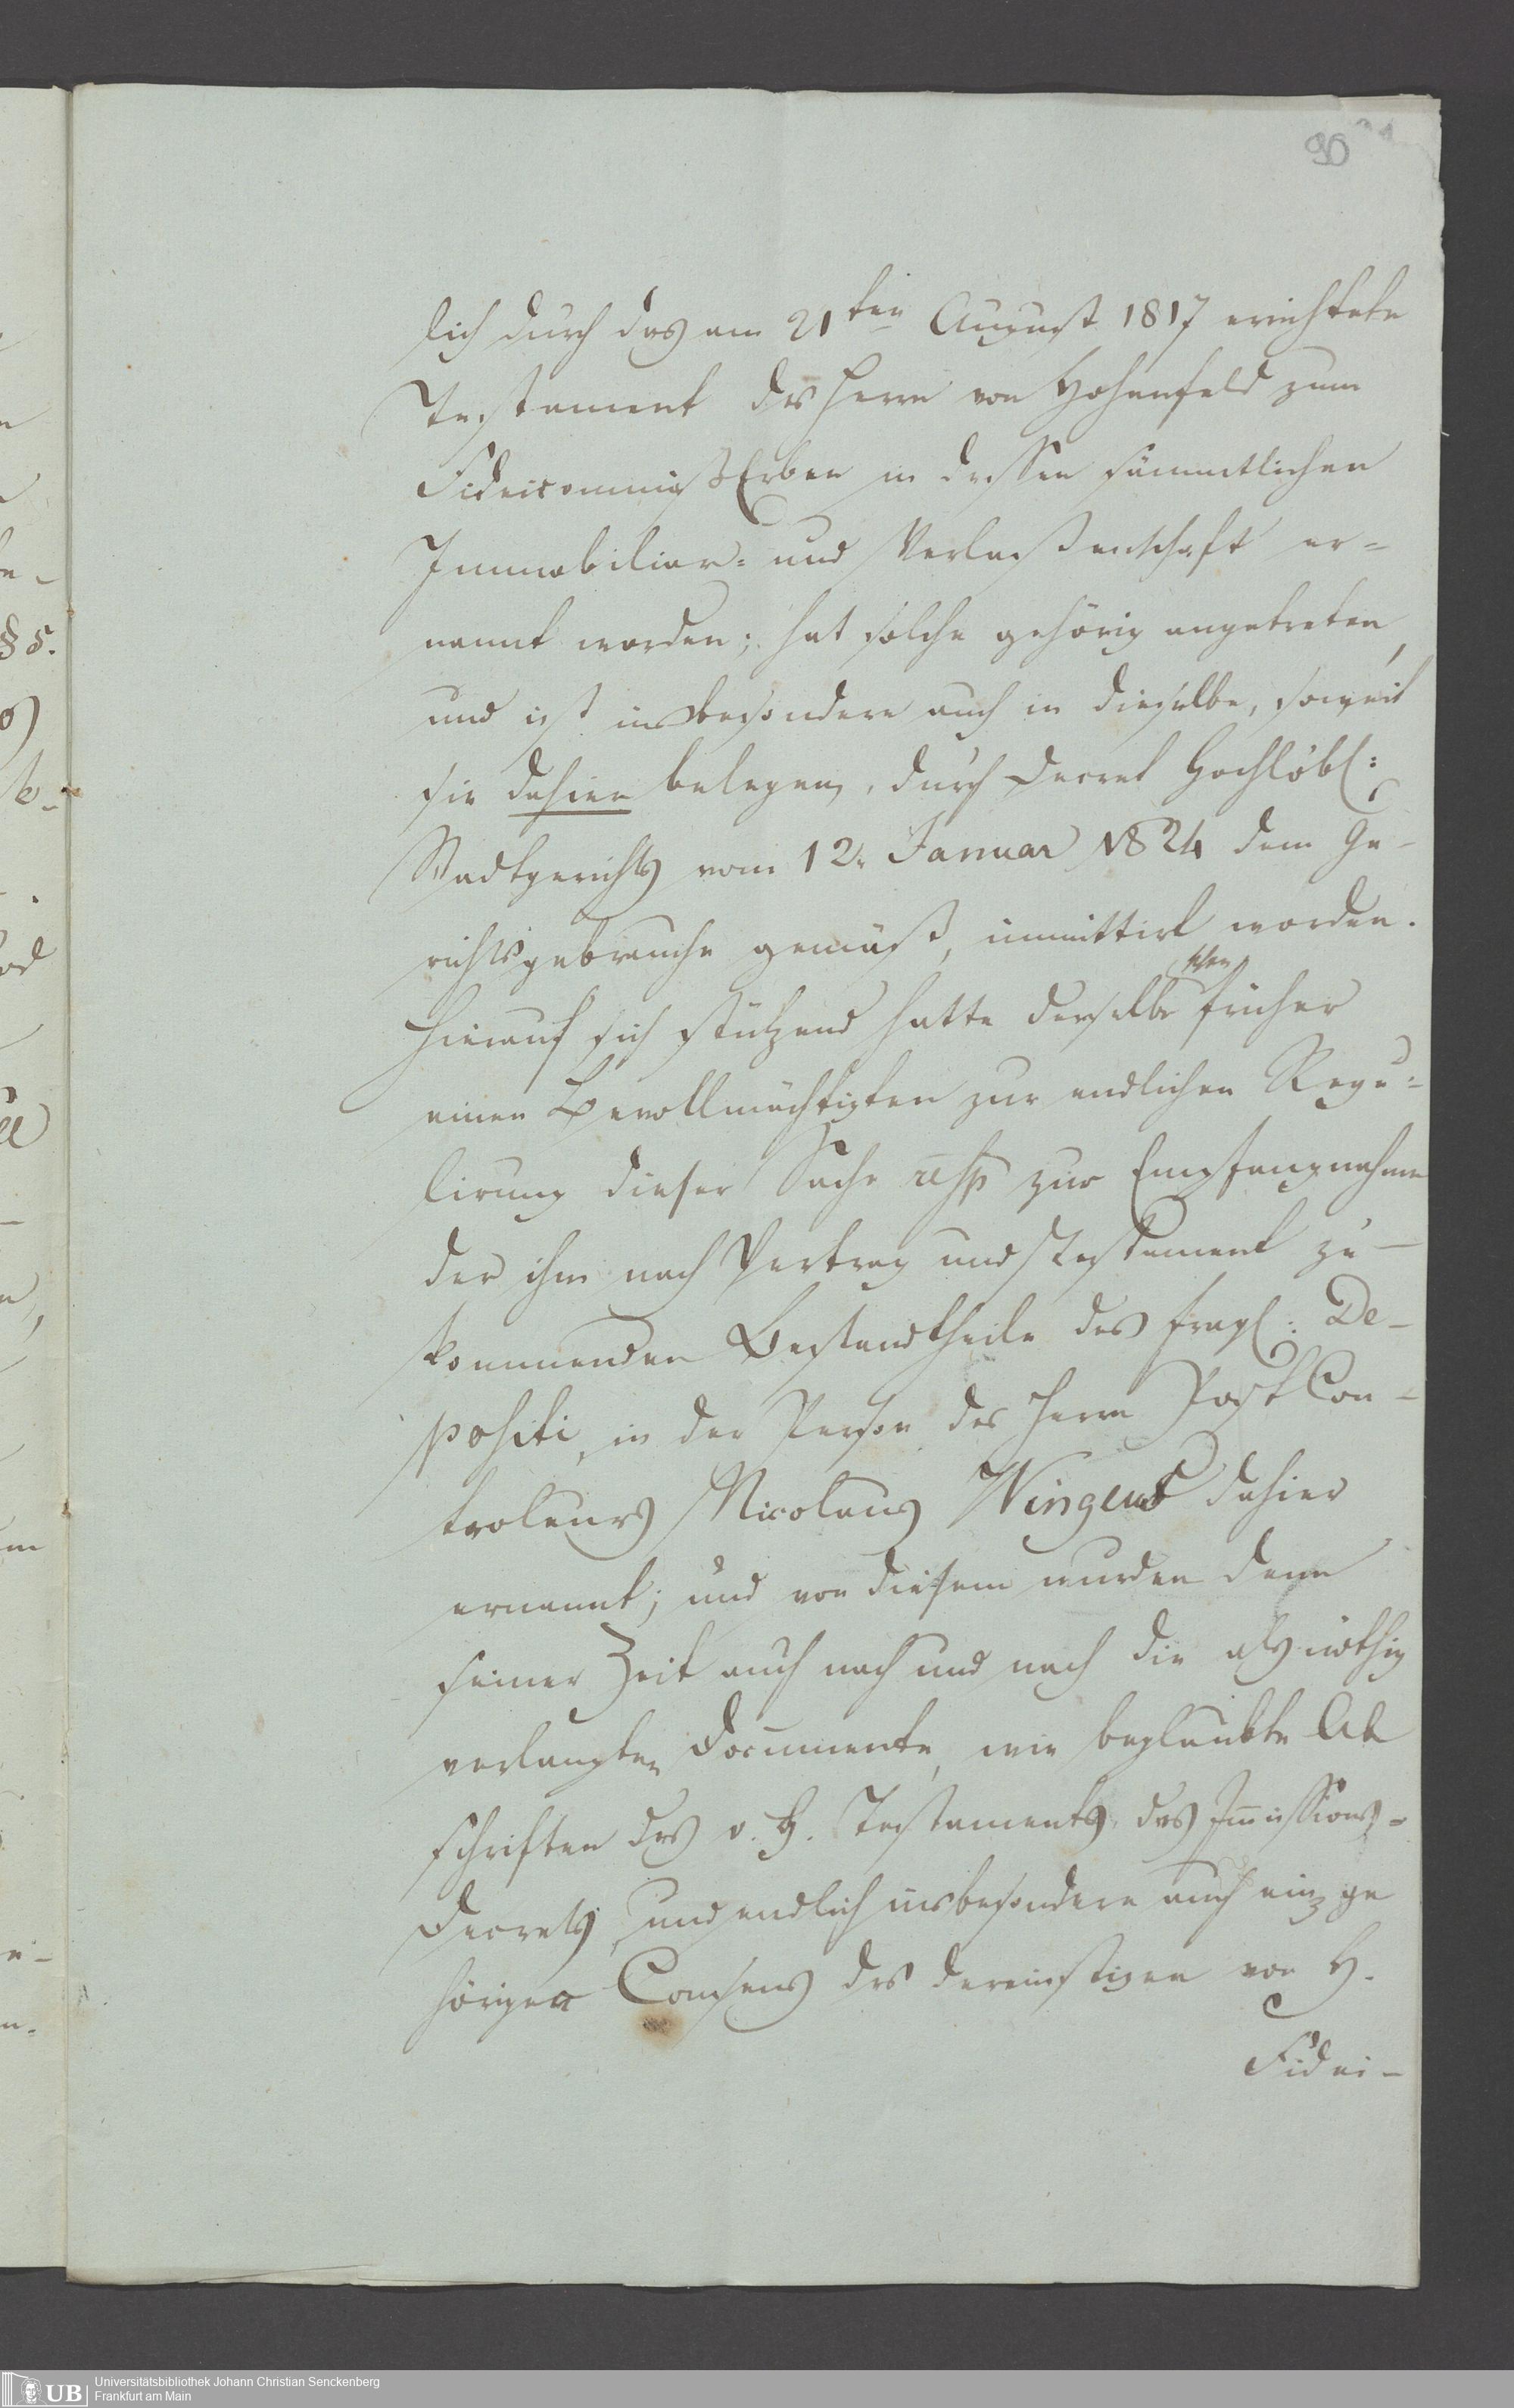 90
lich durch das am 21ten August 1817 errichtete
Testament des Herrn von Hohenfeld zum
Fideicommiß Erben in dessen sämmtlichen
Immobiliar- und Verlaßenschaft er-
nannt worden; hat solche gehörig angetreten,
und ist insbesondere auch in dieselbe, soweit
sie dahier belegen, durch Decret Hochlöbl:
Stadtgerichts vom 12. Januar 1824 dem Ge-
richtsgebrauche gemäß, immittirt worden.
Hierauf sich stützend hatte derselbe schon früher
einen Bevollmächtigten zur endlichen Regu-
lirung dieser Sache resp zur Empfangnahme
der ihm nach Vertrag und Testament zu-
kommenden Bestandtheile des fragl: De-
positi, in der Person des Herrn Post Con-
troleurs Nicolaus Wingens dahier
ernannt; und von diesem wurden denn
seiner Zeit auch nach und nach die als nöthig
verlangten Documente, wie beglaubte Ab
schriften des v. H. Testaments, des Immissions-
Decrets, und endlich insbesondere auch ein ge
höriger Consens des dereinstigen von H.
Fidei-
§ 5.
UB
Universitätsbibliothek Johann Christian Senckenberg
Frankfurt am Main